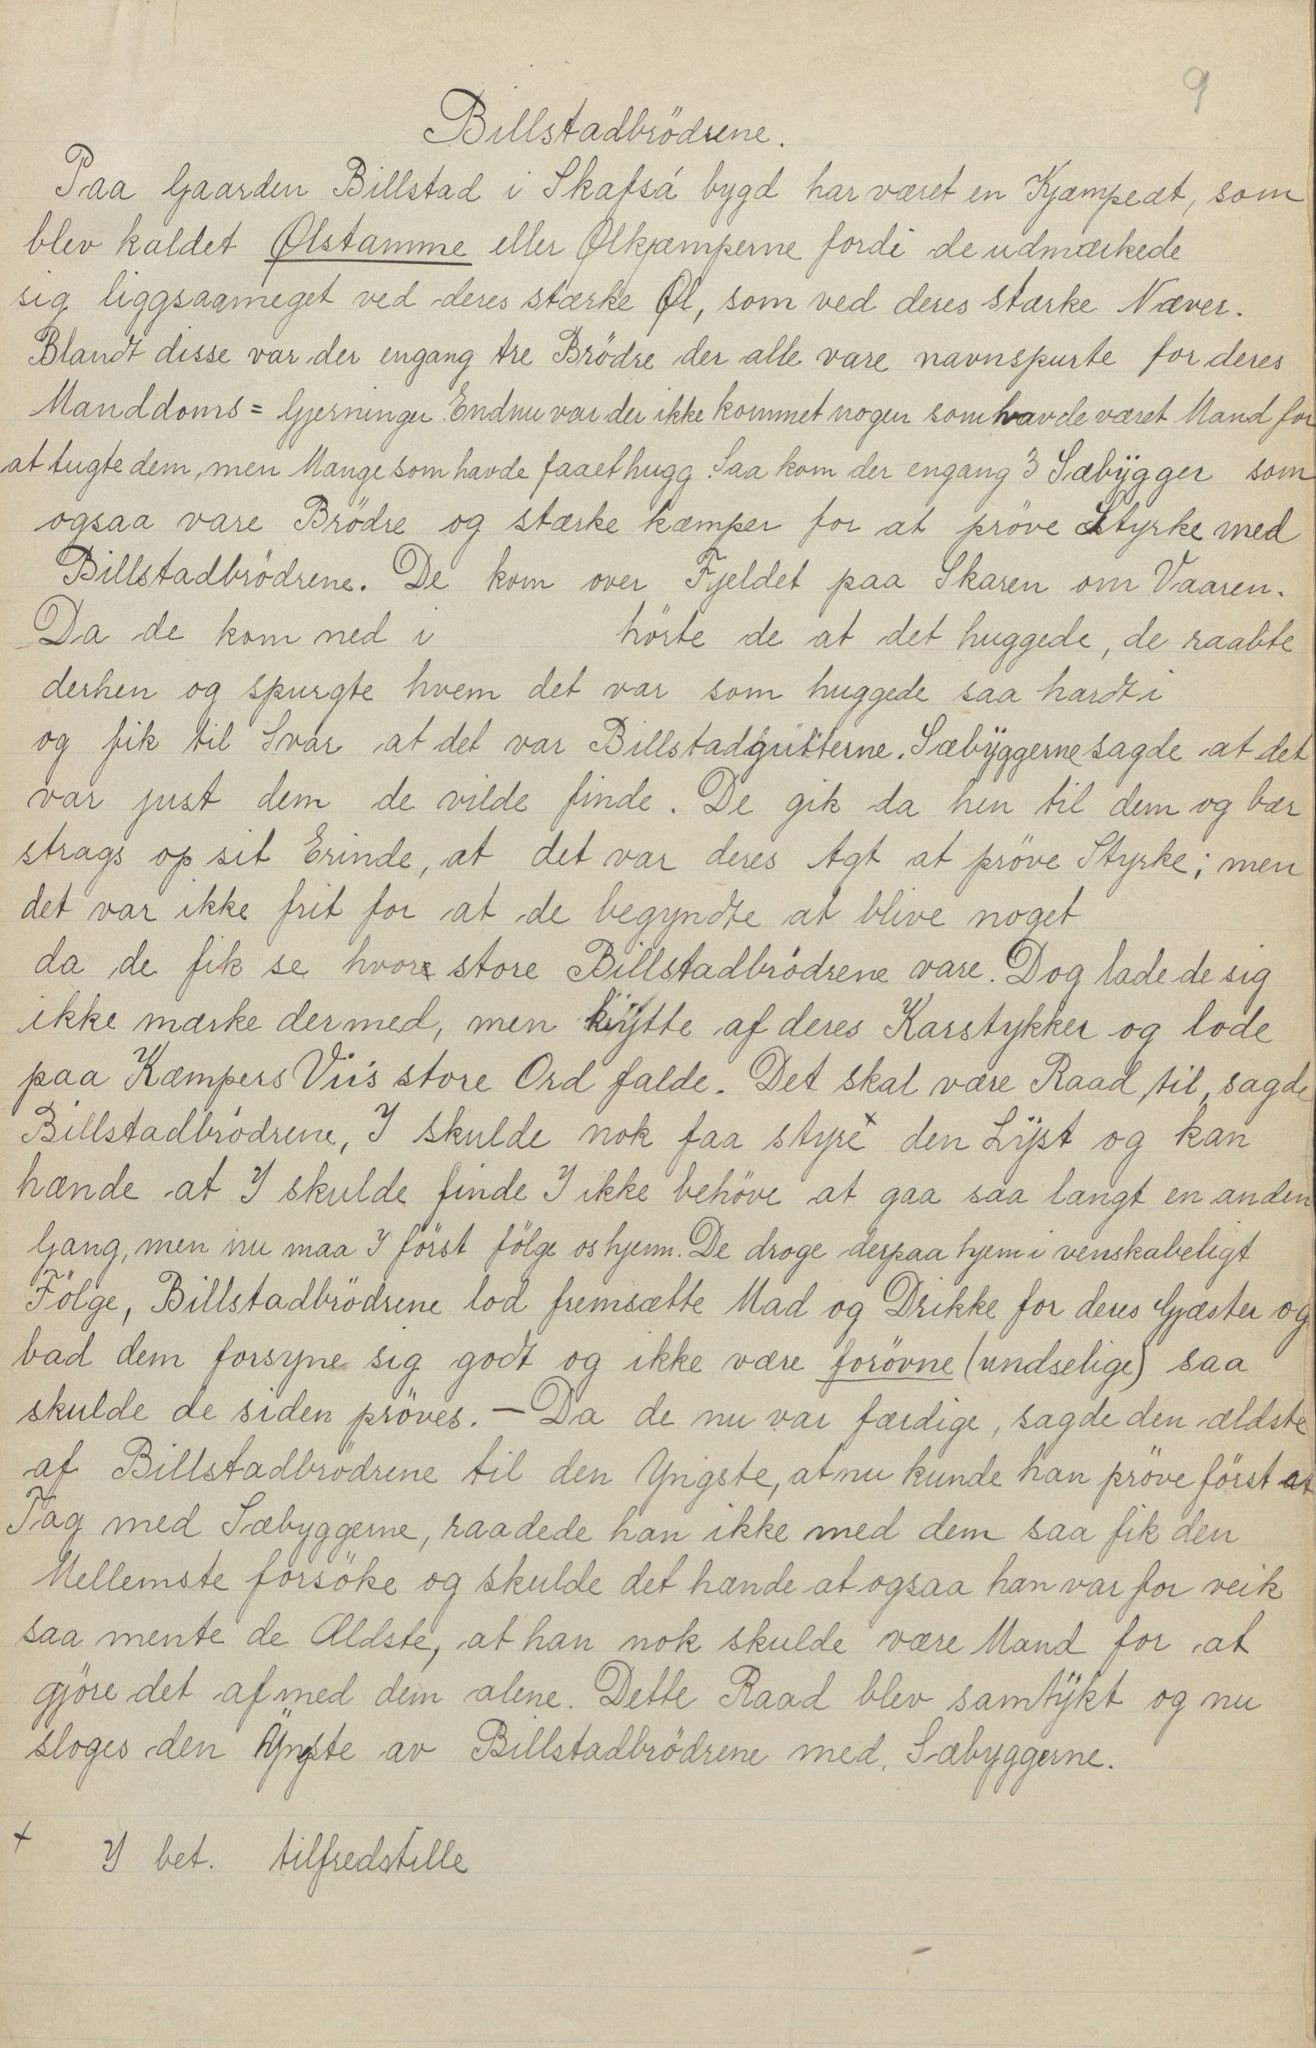 9
Billstadbrödrene.
Paa Gaarden Billstad i Skafså bygd har været en Kjæmpeæt, som
blev kaldet Ølstamme eller Ølkjæmperne fordi de udmærkede
sig liggsaameget ved deres stærke Øl, som ved deres stærke Næver.
Blandt disse var der engang tre Brödre der alle vare navnspurte for deres
Manddoms= Gjerninger. Endnu var der ikke kommet nogen som havde været Mand for
at tugte dem, men Mange som havde faaet hugg. Saa kom der engang 3 Sæbÿgger som
ogsaa vare Brödre og stærke kæmper for at pröve Styrke med
Billstadbrödrene. De kom over Fjeldet paa Skaren om Vaaren.
Da de kom ned i hörte de at det huggede, de raabte
derhen og spurgte hvem det var som huggede saa hardt i
og fik til Svar at det var Billstadgutterne. Sæbÿggerne sagde at det
var just dem de vilde finde. De gik da hen til dem og bær
strags op sit Erinde, at det var deres Agt at pröve Styrke; men
det var ikke frit for at de begyndte at blive noget
da de fik se hvor store Billstadbrödrene vare. Dog lade de sig
ikke mærke dermed, men kÿtte af deres Karstykker og lode
paa Kæmpers Viis store Ord falde. Det skal være Raad til, sagde
Billstadbrödrene, I skulde nok faa styre x den Lÿst og kan
hænde at I skulde finde I ikke behöve at gaa saa langt en anden
Gang, men nu maa I först fölge os hjem. De droge derpaa hjem i venskabeligt
Fölge, Billstadbrödrene lod fremsætte Mad og Drikke for deres Gjæster og
bad dem forsyne sig godt og ikke være forövne (undselige) saa
skulde de siden pröves. — Da de nu var færdige, sagde den ældste
af Billstadbrödrene til den Yngste, at nu kunde han pröve först at
Tag med Sæbyggerne, raadede han ikke med dem saa fik den
Mellemste forsöke og skulde det hænde at ogsaa han var for veik
saa mente de Ældste, at han nok skulde være Mand for at
gjöre det af med dem alene. Dette Raad blev samtÿkt og nu
sloges den Yngste av Billstadbrödrene med Sæbyggerne.
x I bet. tilfredstille